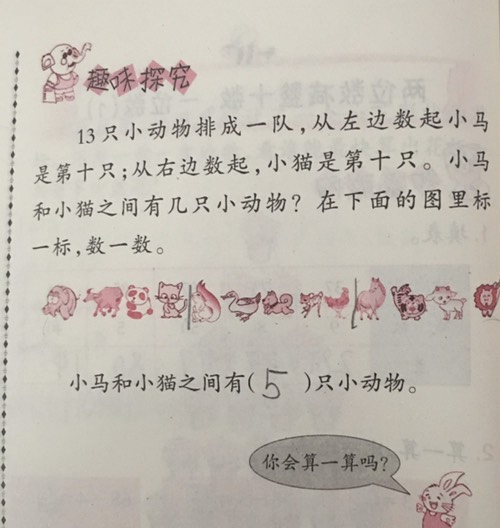 趣味探究
13只小动物排成一队，从左边数起小马
是第十只；从右边数起，小猫是第十只。小马
和小猫之间有几只小动物？在下面的图里标
一标，数一数。
小马和小猫之间有(5)只小动物。
你会算一算吗？